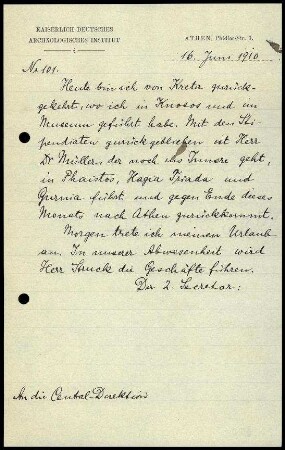 KAISERLICH DEUTSCHES
ARCHÄOLOGISCHES INSTITUT
ATHEN, Phidiasstr. 1.
16. Juni 1910.
No 101.
Heute bin ich von Kreta zurück-
gekehrt, wo ich in Knosos und im
Museum geführt habe. Mit den Sti-
pendiaten zurückgeblieben ist Herr
Dr Müller, der noch ins Innere geht,
in Phaistos, Hagia Triada und
Gurnia führt und gegen Ende dieses
Monats nach Athen zurückkommt.
Morgen trete ich meinen Urlaub
an. In unserer Abwesenheit wird
Herr Struck die Geschäfte führen.
Der 2. Secretar:
An die Central-Direktion